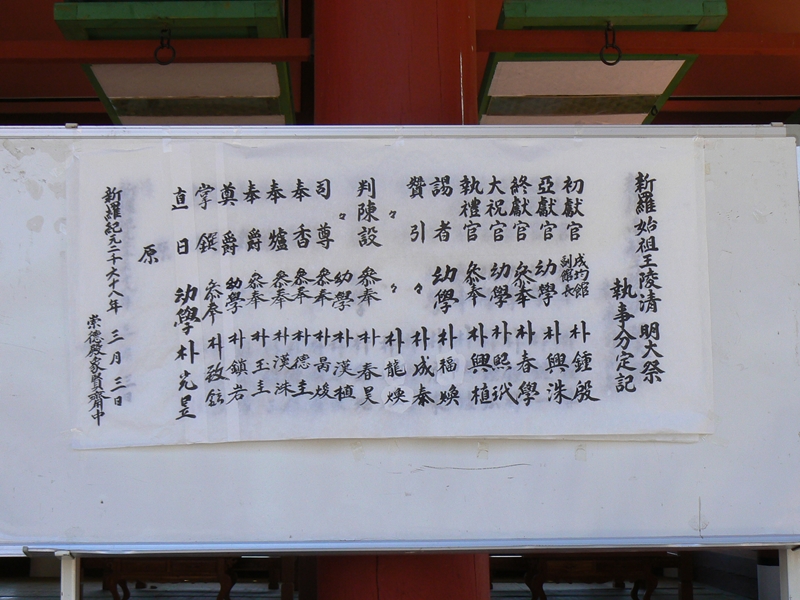 新羅始祖王陵清明大祭
執事分定記
初獻官 成均館副館長 朴鍾殷
亞獻官 幼學 朴興洙
終獻官 參奉 朴春學
大祝官 幼學 朴熙
執禮官 參奉 朴興植
謁者 幼學 朴福煥
贊引 〃 朴成泰
〃 〃 朴龍煥
判陳設 參奉 朴春昊
〃 幼學 朴漢植
司尊 參奉 朴
奉香 參奉 朴德圭
奉爐 參奉 朴漢洙
奉爵 參奉 朴玉圭
奠爵 幼學 朴鎖岩
掌饌 參奉 朴致鉉
直日 幼學 朴光昱
原
新羅紀元二千六十八年 三月三日
崇德殿 齋中